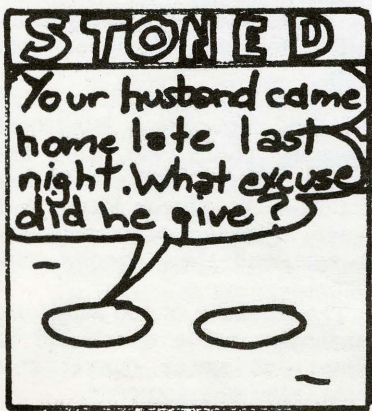 STONED
Your husband came
home late last
night. What excuse
did he give?